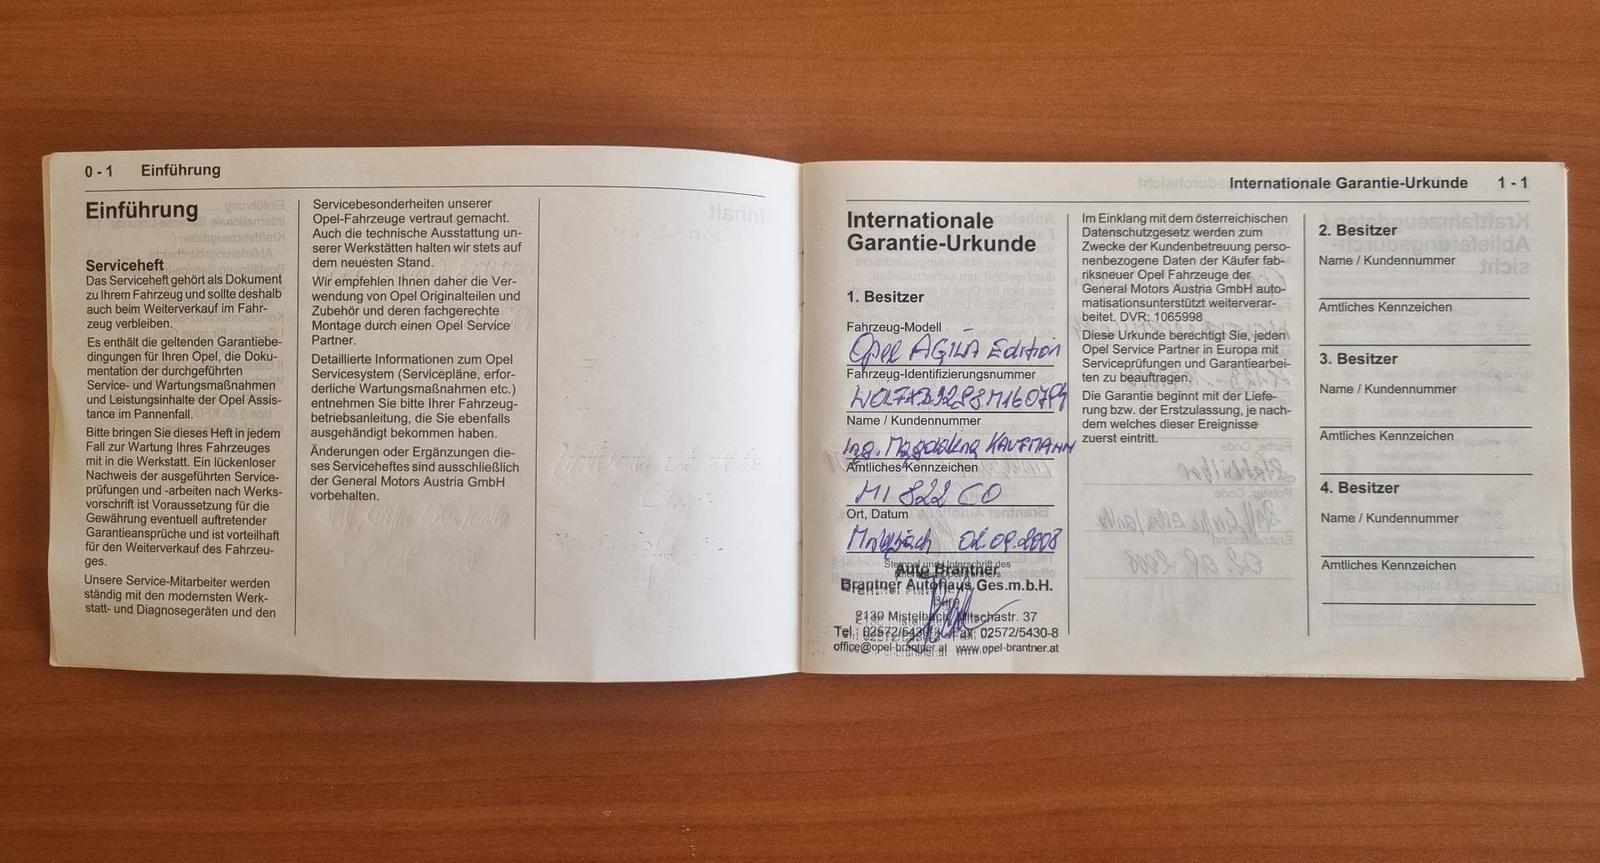 0 - 1 Einführung
Einführung
Serviceheft
Das Serviceheft gehört als Dokument
zu Ihrem Fahrzeug und sollte deshalb
auch beim Weiterverkauf im Fahr-
zeug verbleiben.
Es enthält die geltenden Garantiebe-
dingungen für Ihren Opel, die Doku-
mentation der durchgeführten
Service- und Wartungsmaßnahmen
und Leistungsinhalte der Opel Assis-
tance im Pannenfall.
Bitte bringen Sie dieses Heft in jedem
Fall zur Wartung Ihres Fahrzeuges
mit in die Werkstatt. Ein lückenloser
Nachweis der ausgeführten Service-
prüfungen und -arbeiten nach Werks-
vorschrift ist Voraussetzung für die
Gewährung eventuell auftretender
Garantieansprüche und ist vorteilhaft
für den Weiterverkauf des Fahrzeu-
ges.
Unsere Service-Mitarbeiter werden
ständig mit den modernsten Werk-
statt- und Diagnosegeräten und den
Servicebesonderheiten unserer
Opel-Fahrzeuge vertraut gemacht.
Auch die technische Ausstattung un-
serer Werkstätten halten wir stets auf
dem neuesten Stand.
Wir empfehlen Ihnen daher die Ver-
wendung von Opel Originalteilen und
Zubehör und deren fachgerechte
Montage durch einen Opel Service
Partner.
Detaillierte Informationen zum Opel
Servicesystem (Servicepläne, erfor-
derliche Wartungsmaßnahmen etc.)
entnehmen Sie bitte Ihrer Fahrzeug-
betriebsanleitung, die Sie ebenfalls
ausgehändigt bekommen haben.
Änderungen oder Ergänzungen die-
ses Serviceheftes sind ausschließlich
der General Motors Austria GmbH
vorbehalten.
Internationale Garantie-Urkunde 1 - 1
Internationale
Garantie-Urkunde
1. Besitzer
Fahrzeug-Modell
Opel AGILA Edition
Fahrzeug-Identifizierungsnummer
Name / Kundennummer
Ing. Magdalena KAUFMANN
Amtliches Kennzeichen
MI 822 CO
Ort, Datum
Mistelbach 02.09.2008
Stempel und Unterschrift des
Auto Brantner
Brantner Autohaus Ges.m.b.H.
2130 Mistelbach, Mitschastr. 37
Tel.: 02572/5430 Fax: 02572/5430-8
office@opel-brantner.at www.opel-brantner.at
Im Einklang mit dem österreichischen
Datenschutzgesetz werden zum
Zwecke der Kundenbetreuung perso-
nenbezogene Daten der Käufer fab-
riksneuer Opel Fahrzeuge der
General Motors Austria GmbH auto-
matisationsunterstützt weiterverar-
beitet. DVR: 1065998
Diese Urkunde berechtigt Sie, jeden
Opel Service Partner in Europa mit
Serviceprüfungen und Garantiearbei-
ten zu beauftragen.
Die Garantie beginnt mit der Liefe-
rung bzw. der Erstzulassung, je nach-
dem welches dieser Ereignisse
zuerst eintritt.
2. Besitzer
Name / Kundennummer
Amtliches Kennzeichen
3. Besitzer
Name / Kundennummer
Amtliches Kennzeichen
4. Besitzer
Name / Kundennummer
Amtliches Kennzeichen